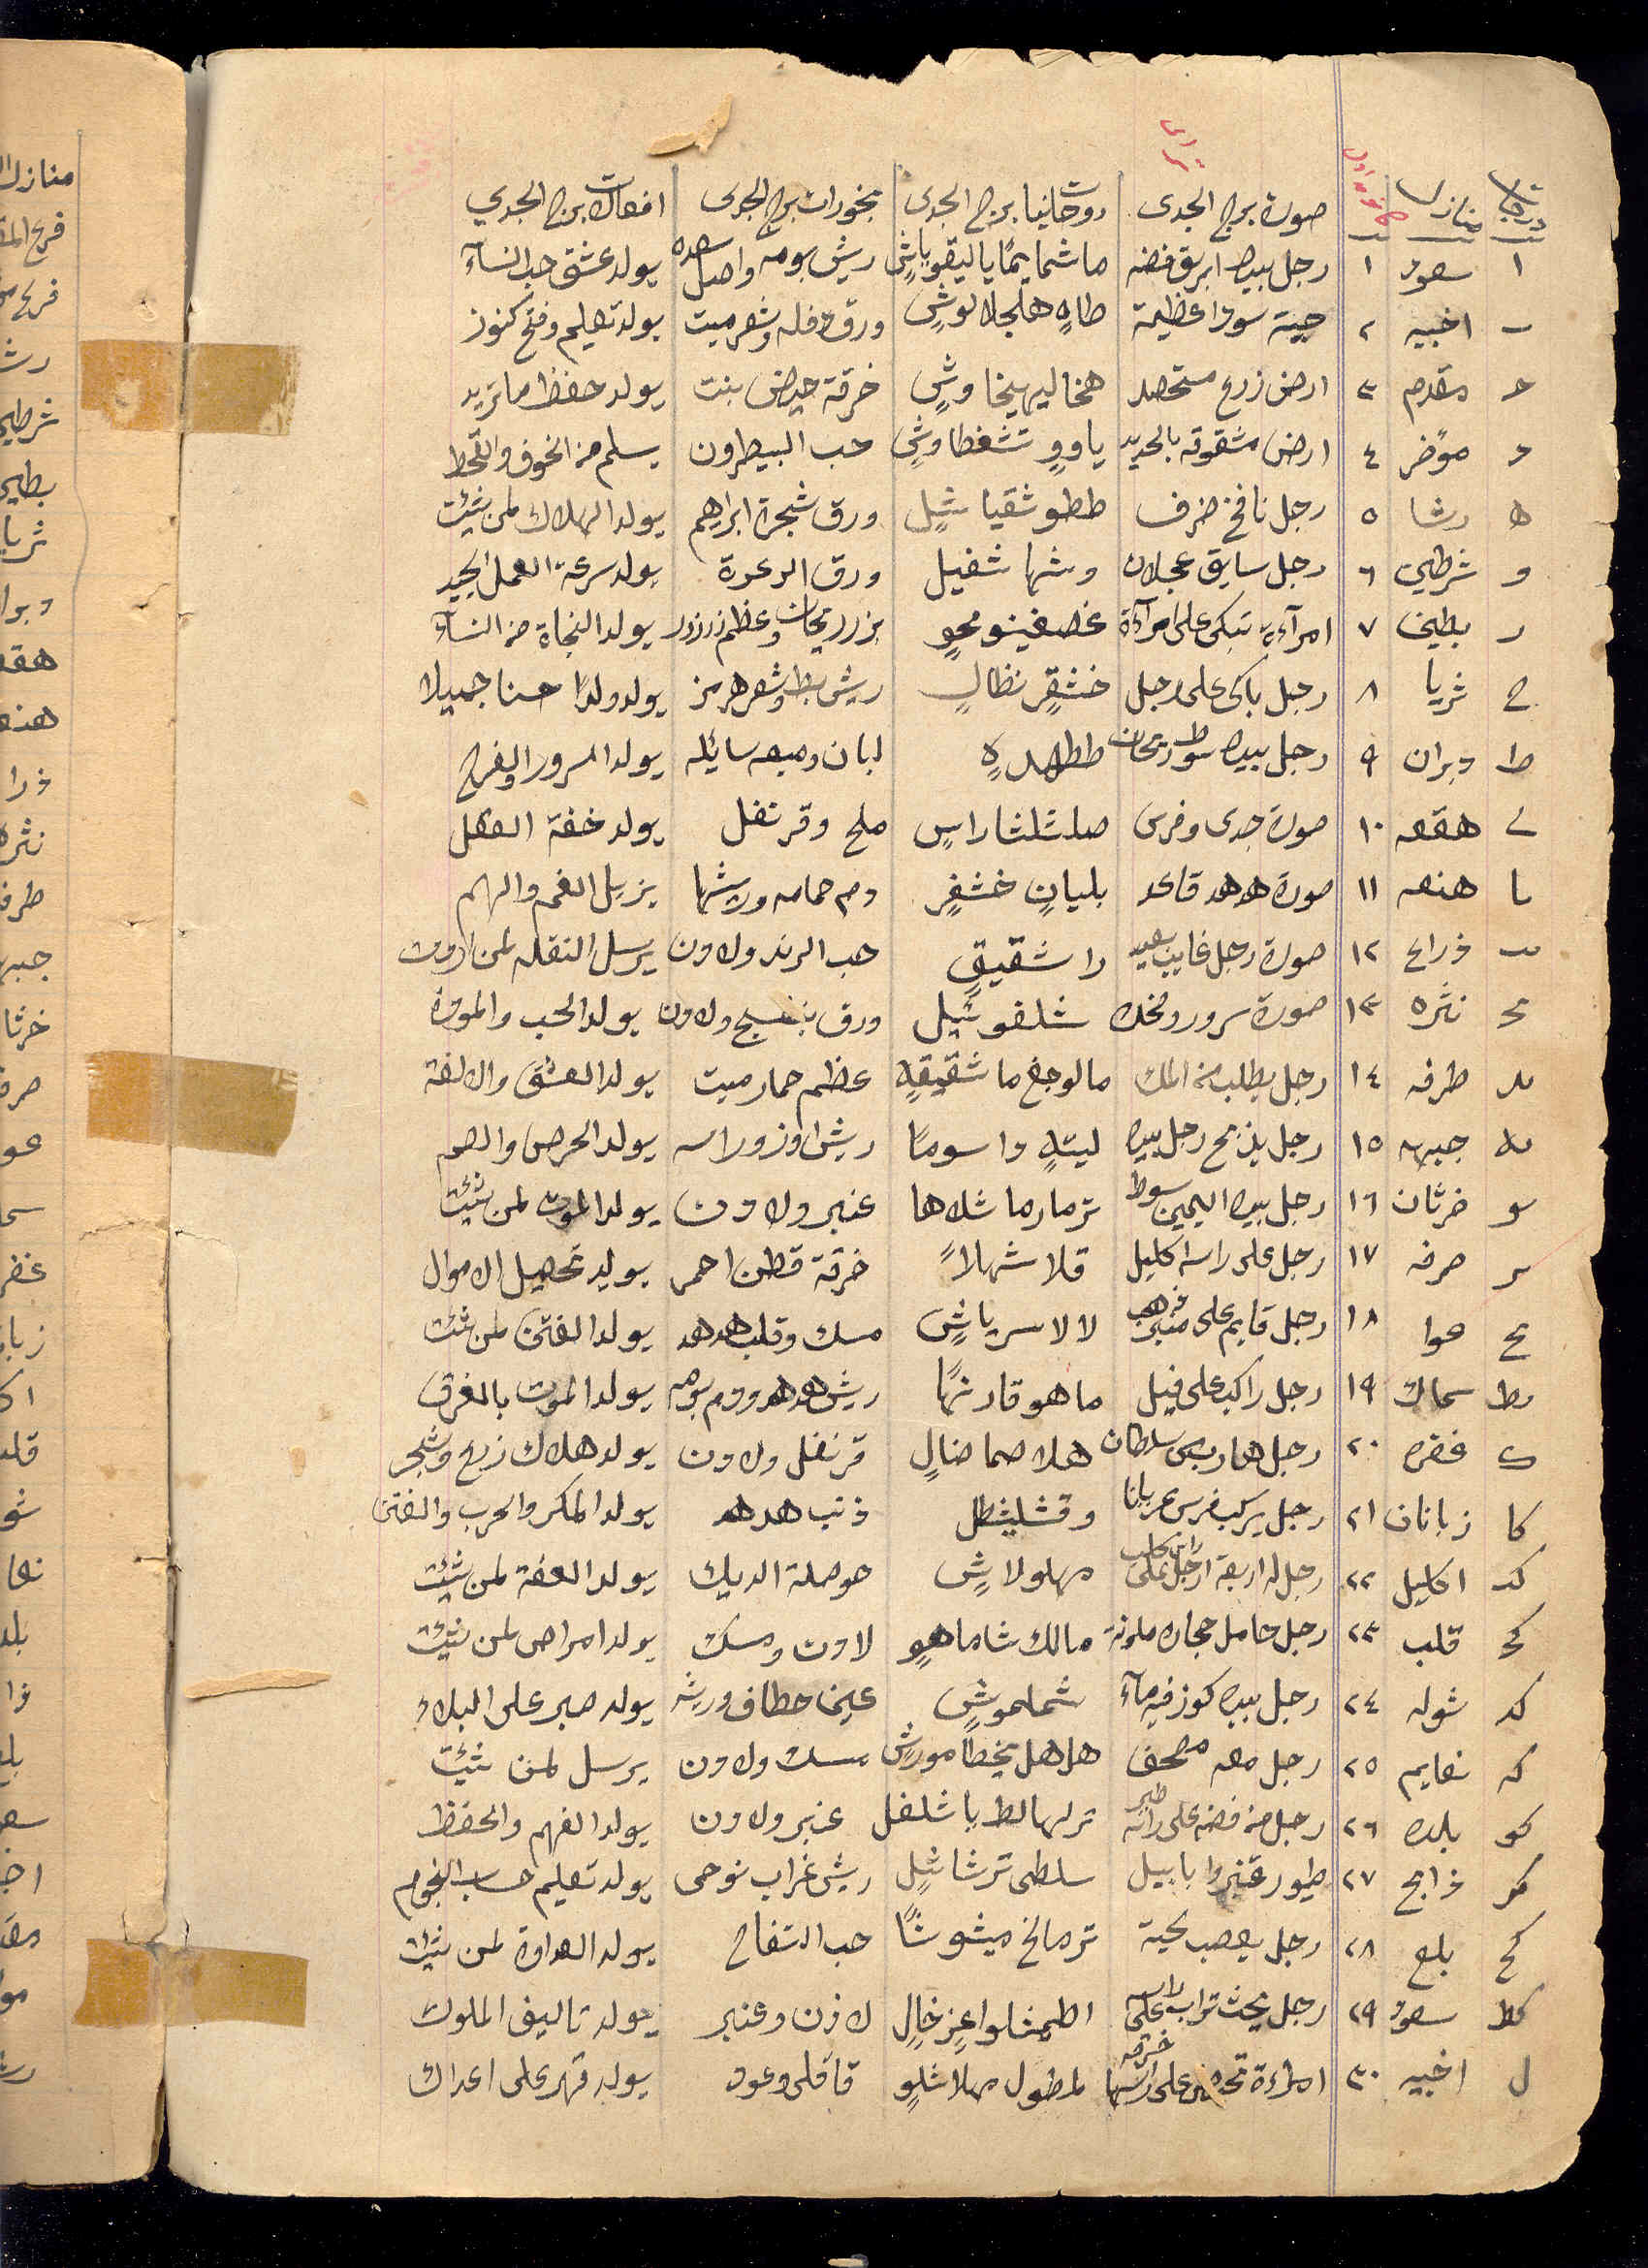 درجات منازل كانون اول صورة برج الجدى روحانيات برج الجدى بخورات برج الجدى افعالات برج الجدي
ا سعود ١ رجل بيده ابريق فضه ماشمايما ياليقوياش ريش بومه واصل يولد عشق حب النسآء
ب اخبيه ٢ حيّة سودا عظيمة طاه هلجلالوش ورق دفله وشعر ميت يولد تعليم وفتح كنوز
ج مقدم ٣ ارض زرع مستحصد هخاليهيخاوش خرقة حيض بنت يولد حفظ ما تريد
د مؤخر ٤ ارض مشقوقه بالحديد ياوو تشغطاوش حب البيطرون يسلم من الخوف والقحط
ه رشا ٥ رجل نافخ خزف ططوشقياشل ورق شجرة ابراهيم يولد الهلاك لمن شئت
و شرطين ٦ رجل سايق عجلان وشها شغيل ورق الدعرة يولد سرعة العمل الجيد
ز بطين ٧ امرآءة تبكى على امرآءة غصغينومحو بزر ريحان وعظم زرزور يولد النجاة من النسآء
ح ثريا ٨ رجل باكى على رجل خشقر نظال ريش بط وشعر هر يولد ولدا حسنا جميلا
ط دبران ٩ رجل بيده سوط ريحان لبان وميعه سائله يولد السرور والفرح
ي هقعه ١٠ صورة جدى وفرس صلشلشاراس ملح وقرنفل يولد خفة العقل
يا هنعه ١١ صورة هدهد قاعد بليان خشغر دم حمامه وريشها يزيل الغم والهم
يب ذراع ١٢ صورة رجل غايب بعيد داشقيق حب الرند ولادن يرسل النقله لمن اردت
يج نثره ١٣ صورة سرور وضحك شلقوئيل ورق بنفسج ولادن يولد الحب والمودة
يد طرفه ١٤ رجل يطلب من الملك مالوجع ماشقيقة عظم حمار ميت يولد العشق والالفة
يه جبهه ١٥ رجل يذبح رجل بيده ليته واسوما ريش اوز وراسه يولد الحرص والصم
يو خرثان ١٦ رجل بيده اليمين سوط ترمارما شلاها عنبر ولادن يولد الموت لمن شئت
يز صرفه ١٧ رجل على راسه اكليل قلا شهلا خرقة قطن احمر يولد تحصيل الاموال
يح عوا ١٨ رجل قايم على منبر ذهب لالاسرياش مسك وقلب هدهد يولد الفتن لمن شئت
يط سماك ١٩ رجل راكب على فيل ماهو قارنها ريش هدهد ودم بومه يولد الموت بالغرق
ك غفره ٢٠ رجل هارب من سلطان هلا صماضال قرنفل ولادن يولد هلاك زرع وشجر
كا زبانان ٢١ رجل يركب فرس عريانا وقشليشطل ذنب هدهد يولد المكر والحرب والفتن
كب اكليل ٢٢ رجل له اربعة ارجل على راس كلب مهلولاش حوصلة الديك يولد العفة لمن شئت
كج قلب ٢٣ رجل حامل حجاره ملونه مالك شاماهو لادن ومسك يولد امراض لمن شئت
كد شوله ٢٤ رجل بيده كوز فيه مآء شملموش عين خطاف وريشه يولد صبر على البلاد
كه نعايم ٢٥ رجل معه مصحف هل هل يخطا مورش مسك ولادن يرسل لمن شئت
كو بلده ٢٦ رجل من فضه على راسه طير ترلهالط ياشلغل عنبر ولادن يولد الفهم والحفظ
كز ذابح ٢٧ طيور قنبر وابابيل سلطى ترشاشل ريش غراب نوحى يولد تعليم حساب النجوم
كح بلع ٢٨ رجل يعصب لحية ترمالخ ميشوشا حب التفاح يولد العداوة لمن شئت
كط سعود ٢٩ رجل يحث تراب على راسه اطمثلواعز خال لاذن وعنبر يولد تاليف الملوك
ل اخبيه ٣٠ امرءة تحمل على راسها خرقه لمطول مهلاشلو قاقلى وعود يولد قهر على اعداك